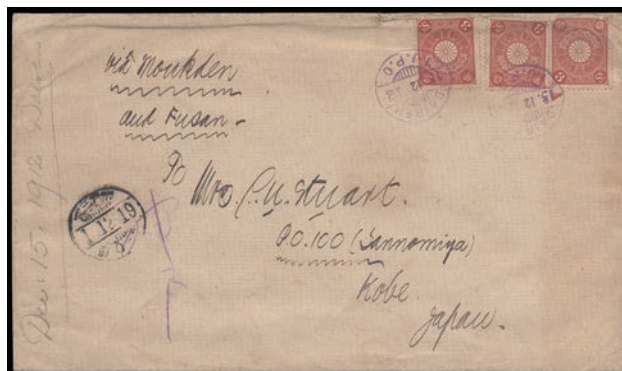 via Moukden
and Fusan -
To Mrs. C. U. Stuart.
P.O. 100 (Sannomiya)
Kobe
Japan.
Dec: 15. 1912
I.J.P.O
15.12
1 12 19